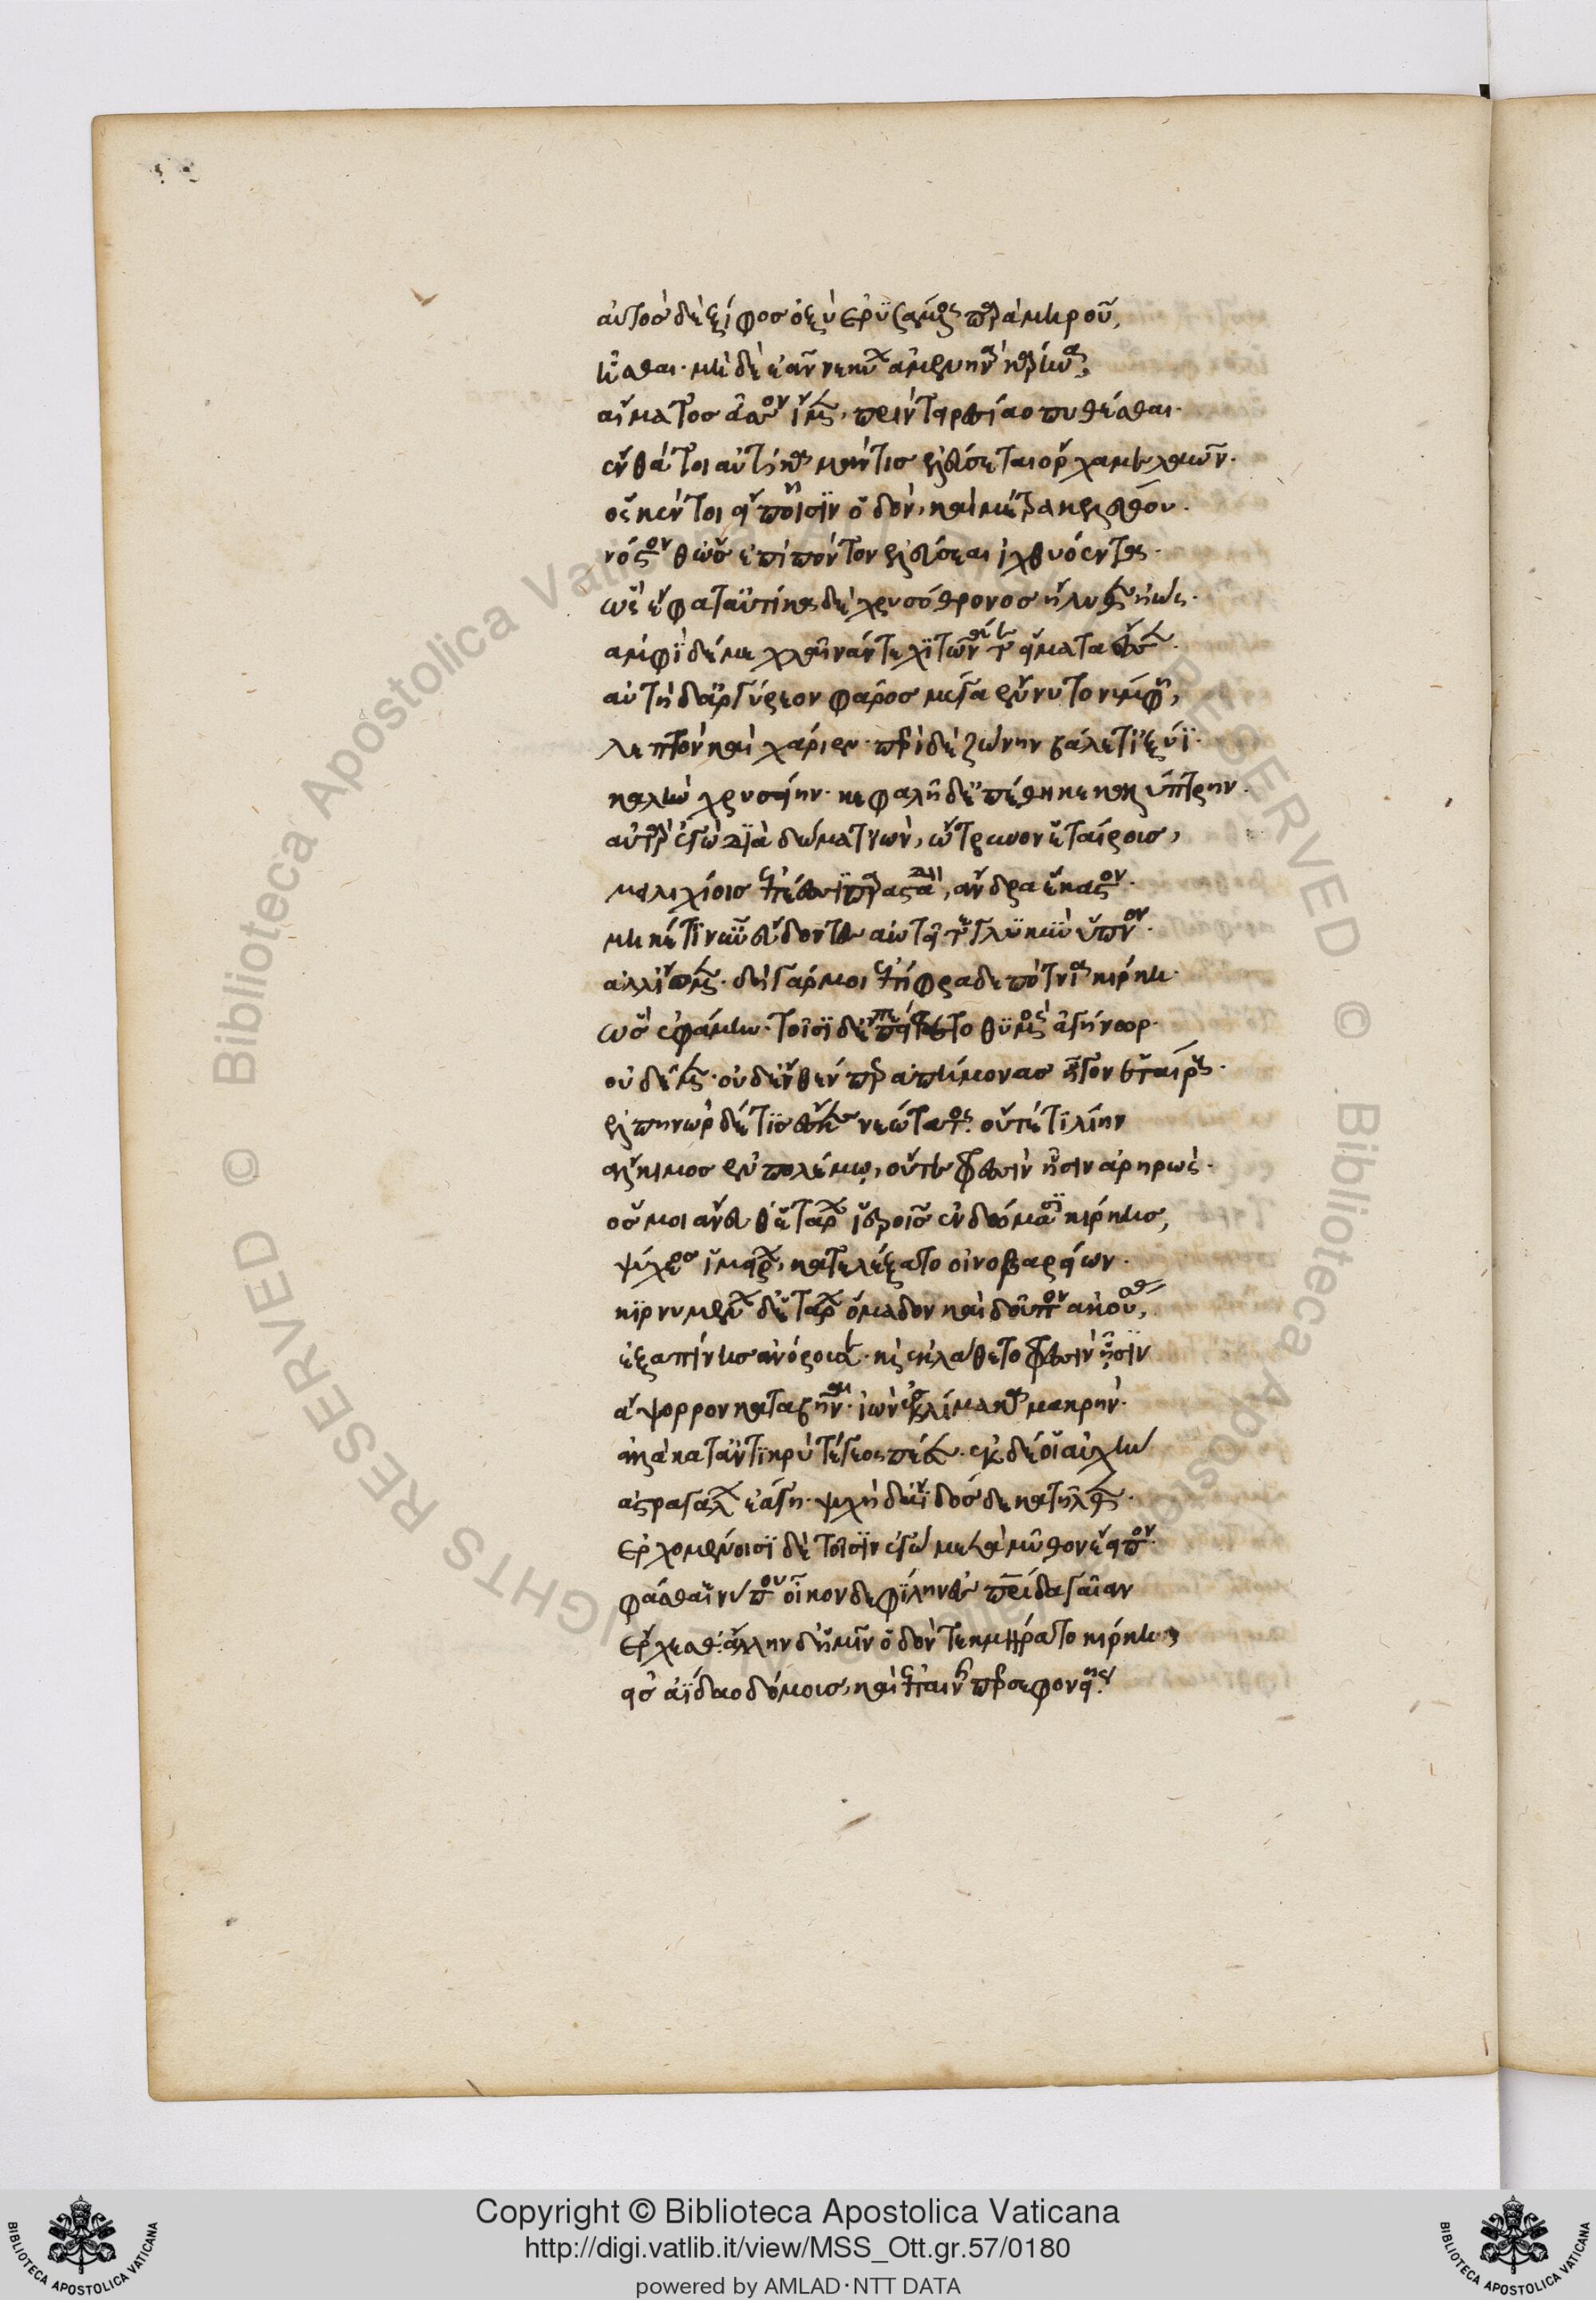 αὐτὸσ δὲ ξίφος ὀξὺ ἐρυσάμενος παρὰ μηροῦ,
ἧσθαι· μηδὲ ἐᾶν νεκύων ἀμενηνὰ κάρηνα,
αἵματος ἆσσον ἴμεν, πρὶν τειρεσίαο πυθέσθαι·
ἔνθα τοι αὐτίκα μάντισ ἐλεύσεται ὄρχαμε λαῶν·
ὅς κέν τοι εἴπῃσιν ὁδὸν, καὶ μέτρα κελεύθου·
νόστον θ' ὡς ἐπὶ πόντον ἐλεύσεαι ἰχθυόεντα·
ὣς ἔφατ' αὐτίκα δὲ χρυσόθρονοσ ἤλυθεν ἠώς·
ἀμφὶ δέ με χλαῖνάν τε χιτῶνά τε εἵματα ἕσσεν·
αὐτὴ δ' ἀργύρεον φᾶρος μέγα ἕννυτο νύμφη,
λεπτὸν καὶ χαρίεν· περὶ δὲ ζώνην βάλετ' ἰξυῖ·
καλὴν χρυσείην· κεφαλῇ δ' ἐπέθηκε καλύπτρην·
αὐτὰρ ἐγὼ διὰ δώματ' ἰὼν, ὤτρυνον ἑταίροισ,
μειλιχίοισ ἐπέεσσι παρασταδὸν, ἄνδρα ἕκαστον·
μηκέτι νῦν εὕδοντες ἀωτεῖτε γλυκὺν ὕπνον·
ἀλλ' ἴομεν· δὴ γάρ μοι ἐπέφραδε πότνια κίρκη·
ὣς ἐφάμην· τοῖσι δ' ἐπεπείθετο θυμὸς ἀγήνωρ·
οὐδὲ μὲν οὐδ' ἔνθεν περ ἀπήμονασ ἦγον ἑταίρους·
ἐλπήνωρ δέ τισ ἔσκε νεώτατος· οὔτέ τι λίην
ἄλκιμοσ ἐν πολέμῳ, οὔτε φρεσὶν ᾗσιν ἀρηρώς·
ὅσ μοι ἄνευθ' ἑτάρων ἱεροῖσ ἐν δώμασι κίρκησ,
ψύχεος ἱμείρων, κατελέξατο οἰνοβαρείων·
κινυμένων δ' ἑτάρων ὅμαδον καὶ δοῦπον ἀκούσας,
ἐξαπίνησ ἀνόρουσε· καὶ ἐκλάθετο φρεσὶν ᾗσιν
ἄψορρον καταβῆναι· ἰὼν ἐς κλίμακα μακρὴν·
ἀλλὰ καταντικρὺ τέγεος πέσεν· ἐκ δέ οἱ αὐχὴν
ἀστραγάλων ἐάγη· ψυχὴ δ' ἄϊδόσδε κατῆλθεν·
ἐρχομένοισι δὲ τοῖσιν ἐγὼ μετὰ μῦθον ἔειπον·
φάσθαι νύ που οἶκόνδε φίλην ἐς πατρίδα γαῖαν
ἔρχεσθ'· ἄλλην δ' ἥμιν ὁδὸν τεκμήρατο κίρκη,
εἰς ἀΐδαο δόμοισ, καὶ ἐπαινῆς περσεφονείης·
Copyright © Biblioteca Apostolica Vaticana
http://digi.vatlib.it/view/MSS_Ott.gr.57/0180
powered by AMLAD·NTT DATA